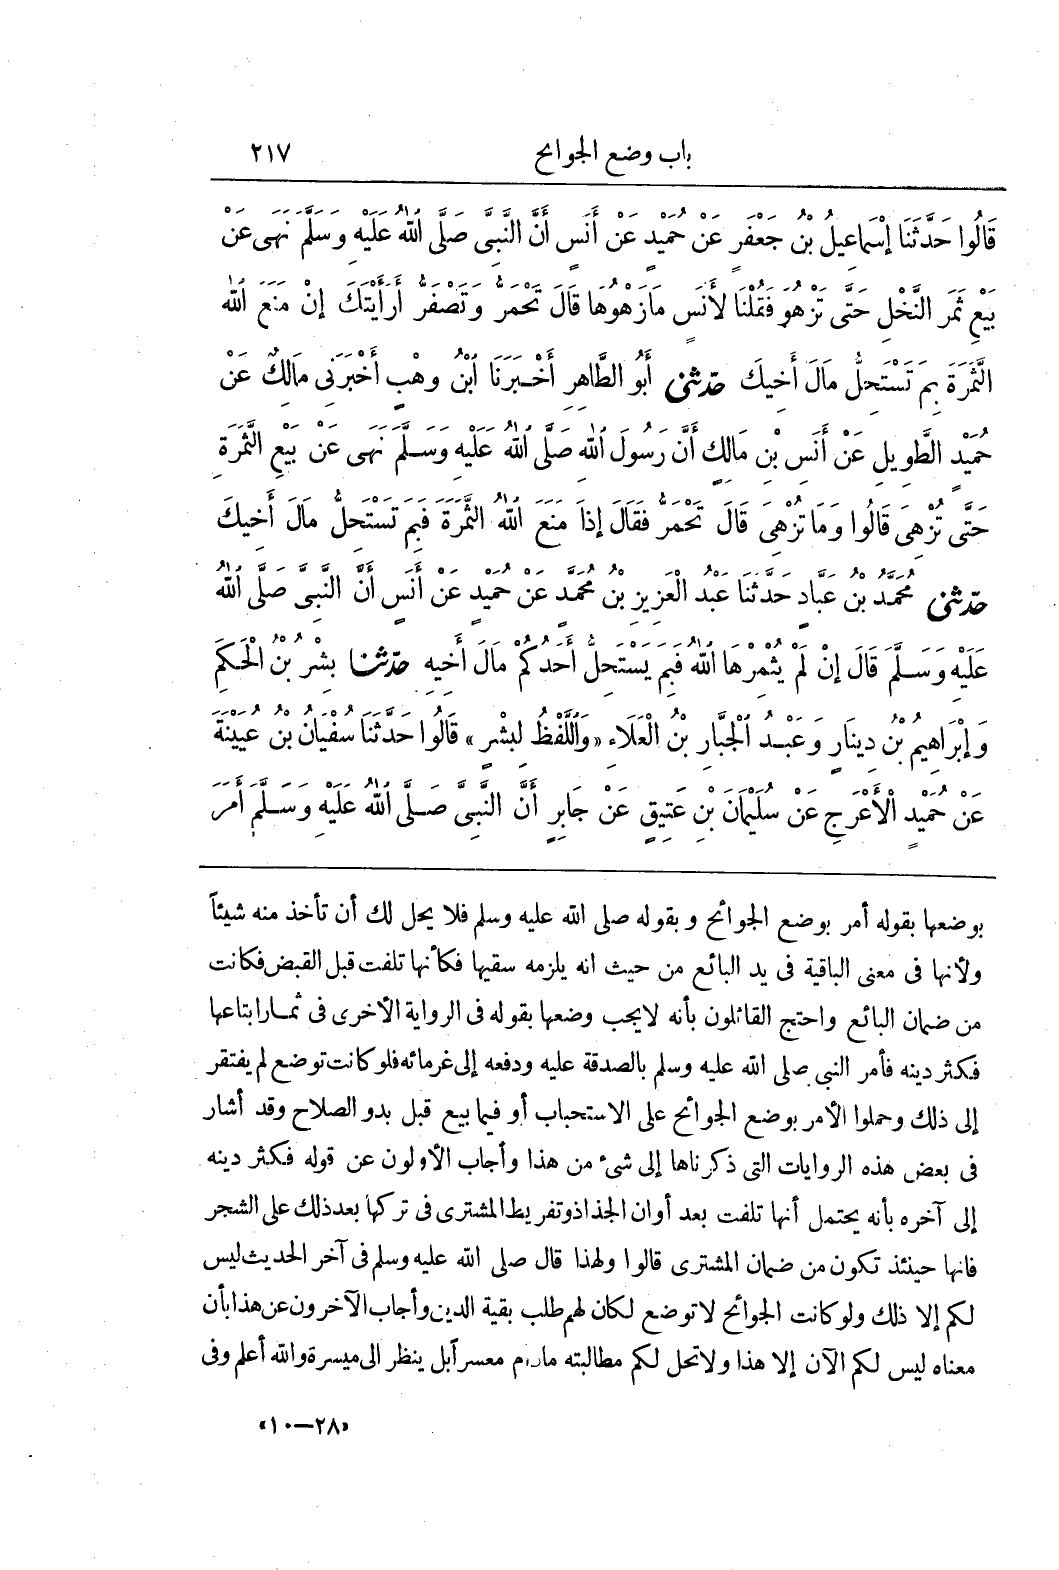 باب وضع الجوائح ٢١٧
قَالُوا حَدَّثَنَا إِسْمَاعِيلُ بْنُ جَعْفَرٍ عَنْ حُمَيْدٍ عَنْ أَنَسٍ أَنَّ النَّبِيَّ صَلَّى اللهُ عَلَيْهِ وَسَلَّمَ نَهَى عَنْ
بَيْعِ ثَمَرِ النَّخْلِ حَتَّى تَزْهُوَ فَقُلْنَا لِأَنَسٍ مَا زَهْوُهَا قَالَ تَحْمَرُّ وَتَصْفَرُّ أَرَأَيْتَكَ إِنْ مَنَعَ اللهُ
الثَّمَرَةَ بِمَ تَسْتَحِلُّ مَالَ أَخِيكَ حدثني أَبُو الطَّاهِرِ أَخْبَرَنَا ابْنُ وَهْبٍ أَخْبَرَنِي مَالِكٌ عَنْ
حُمَيْدٍ الطَّوِيلِ عَنْ أَنَسِ بْنِ مَالِكٍ أَنَّ رَسُولَ اللهِ صَلَّى اللهُ عَلَيْهِ وَسَلَّمَ نَهَى عَنْ بَيْعِ الثَّمَرَةِ
حَتَّى تُزْهِيَ قَالُوا وَمَا تُزْهِيَ قَالَ تَحْمَرُّ فَقَالَ إِذَا مَنَعَ اللهُ الثَّمَرَةَ فَبِمَ تَسْتَحِلُّ مَالَ أَخِيكَ
حدثني مُحَمَّدُ بْنُ عَبَّادٍ حَدَّثَنَا عَبْدُ الْعَزِيزِ بْنُ مُحَمَّدٍ عَنْ حُمَيْدٍ عَنْ أَنَسٍ أَنَّ النَّبِيَّ صَلَّى اللهُ
عَلَيْهِ وَسَلَّمَ قَالَ إِنْ لَمْ يُثْمِرْهَا اللهُ فَبِمَ يَسْتَحِلُّ أَحَدُكُمْ مَالَ أَخِيهِ حدثنا بِشْرُ بْنُ الْحَكَمِ
وَإِبْرَاهِيمُ بْنُ دِينَارٍ وَعَبْدُ الْجَبَّارِ بْنُ الْعَلَاءِ «وَاللَّفْظُ لِبِشْرٍ» قَالُوا حَدَّثَنَا سُفْيَانُ بْنُ عُيَيْنَةَ
عَنْ حُمَيْدٍ الْأَعْرَجِ عَنْ سُلَيْمَانَ بْنِ عَتِيقٍ عَنْ جَابِرٍ أَنَّ النَّبِيَّ صَلَّى اللهُ عَلَيْهِ وَسَلَّمَ أَمَرَ
بوضعها بقوله أمر بوضع الجوائح وبقوله صلى الله عليه وسلم فلا يحل لك أن تأخذ منه شيئاً
ولأنها فى معنى الباقية فى يد البائع من حيث انه يلزمه سقيها فكأنها تلفت قبل القبض فكانت
من ضمان البائع واحتج القائلون بأنه لا يجب وضعها بقوله فى الرواية الأخرى فى ثمار ابتاعها
فكثر دينه فأمر النبى صلى الله عليه وسلم بالصدقة عليه ودفعه إلى غرمائه فلو كانت توضع لم يفتقر
إلى ذلك وحملوا الأمر بوضع الجوائح على الاستحباب أو فيما بيع قبل بدو الصلاح وقد أشار
فى بعض هذه الروايات التى ذكرناها إلى شىء من هذا وأجاب الأولون عن قوله فكثر دينه
إلى آخره بأنه يحتمل أنها تلفت بعد أوان الجذاذ وتفريط المشترى فى تركها بعد ذلك على الشجر
فانها حينئذ تكون من ضمان المشترى قالوا ولهذا قال صلى الله عليه وسلم فى آخر الحديث ليس
لكم إلا ذلك ولو كانت الجوائح لا توضع لكان لهم طلب بقية الدين وأجاب الآخرون عن هذا بأن
معناه ليس لكم الآن إلا هذا ولا تحل لكم مطالبته مادام معسراً بل ينظر الى ميسرة والله أعلم وفى
«٢٨—١٠»